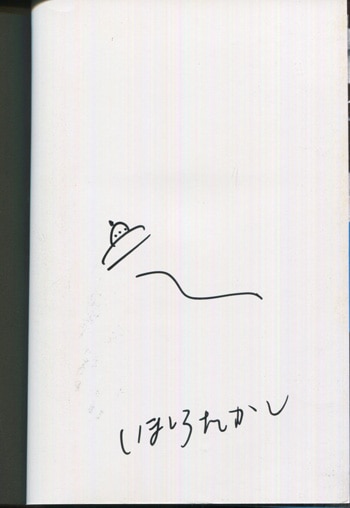 いましろたかし